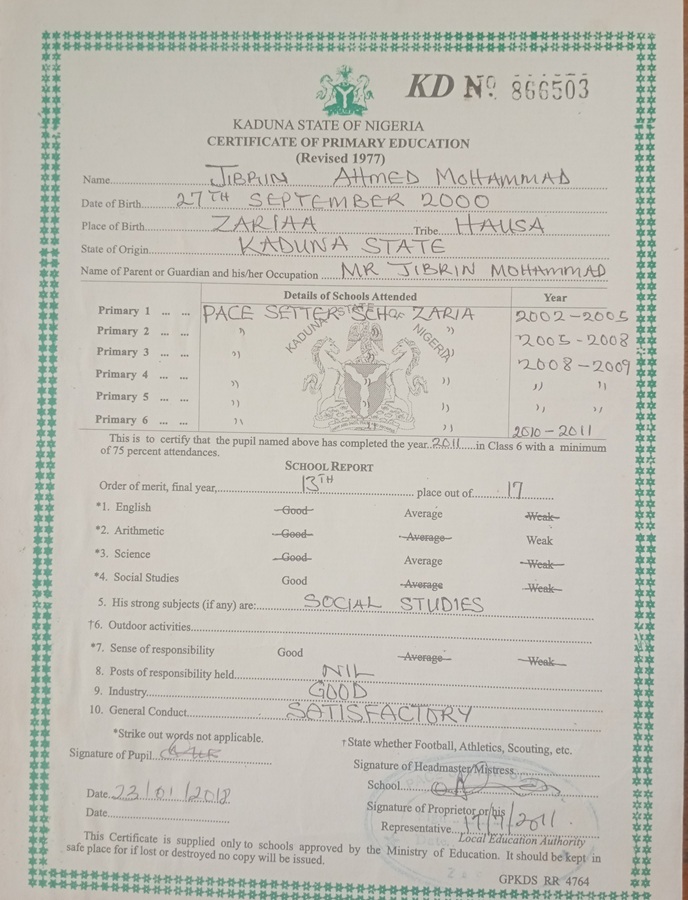 KD Nº 866503
KADUNA STATE OF NIGERIA
CERTIFICATE OF PRIMARY EDUCATION
(Revised 1977)
Name JIBRIN AHMED MOHAMMAD
Date of Birth 27TH SEPTEMBER 2000
Place of Birth ZARIAA Tribe HAUSA
State of Origin KADUNA STATE
Name of Parent or Guardian and his/her Occupation MR JIBRIN MOHAMMAD
Details of Schools Attended Year
Primary 1 ... ... PACE SETTER SCH ZARIA 2002-2005
Primary 2 ... ... ,, ,, 2005-2008
Primary 3 ... ... ,, 2008-2009
Primary 4 ... ... ,, ,, ,, ,, ,,
Primary 5 ... ... ,, ,, ,, ,,
Primary 6 ... ... ,, ,, 2010-2011
KADUNA STATE NIGERIA
This is to certify that the pupil named above has completed the year 2011 in Class 6 with a minimum
of 75 percent attendances.
SCHOOL REPORT
Order of merit, final year, 13TH place out of 17
*1. English Good Average Weak
*2. Arithmetic Good Average Weak
*3. Science Good Average Weak
*4. Social Studies Good Average Weak
5. His strong subjects (if any) are: SOCIAL STUDIES
†6. Outdoor activities
*7. Sense of responsibility Good Average Weak
8. Posts of responsibility held NIL
9. Industry GOOD
10. General Conduct SATISFACTORY
*Strike out words not applicable. †State whether Football, Athletics, Scouting, etc.
Signature of Pupil
Signature of Headmaster/Mistress
School
Date 23/01/2018
Signature of Proprietor or his
Date
Representative 17/7/2011
Local Education Authority
This Certificate is supplied only to schools approved by the Ministry of Education. It should be kept in
safe place for if lost or destroyed no copy will be issued.
GPKDS RR 4764